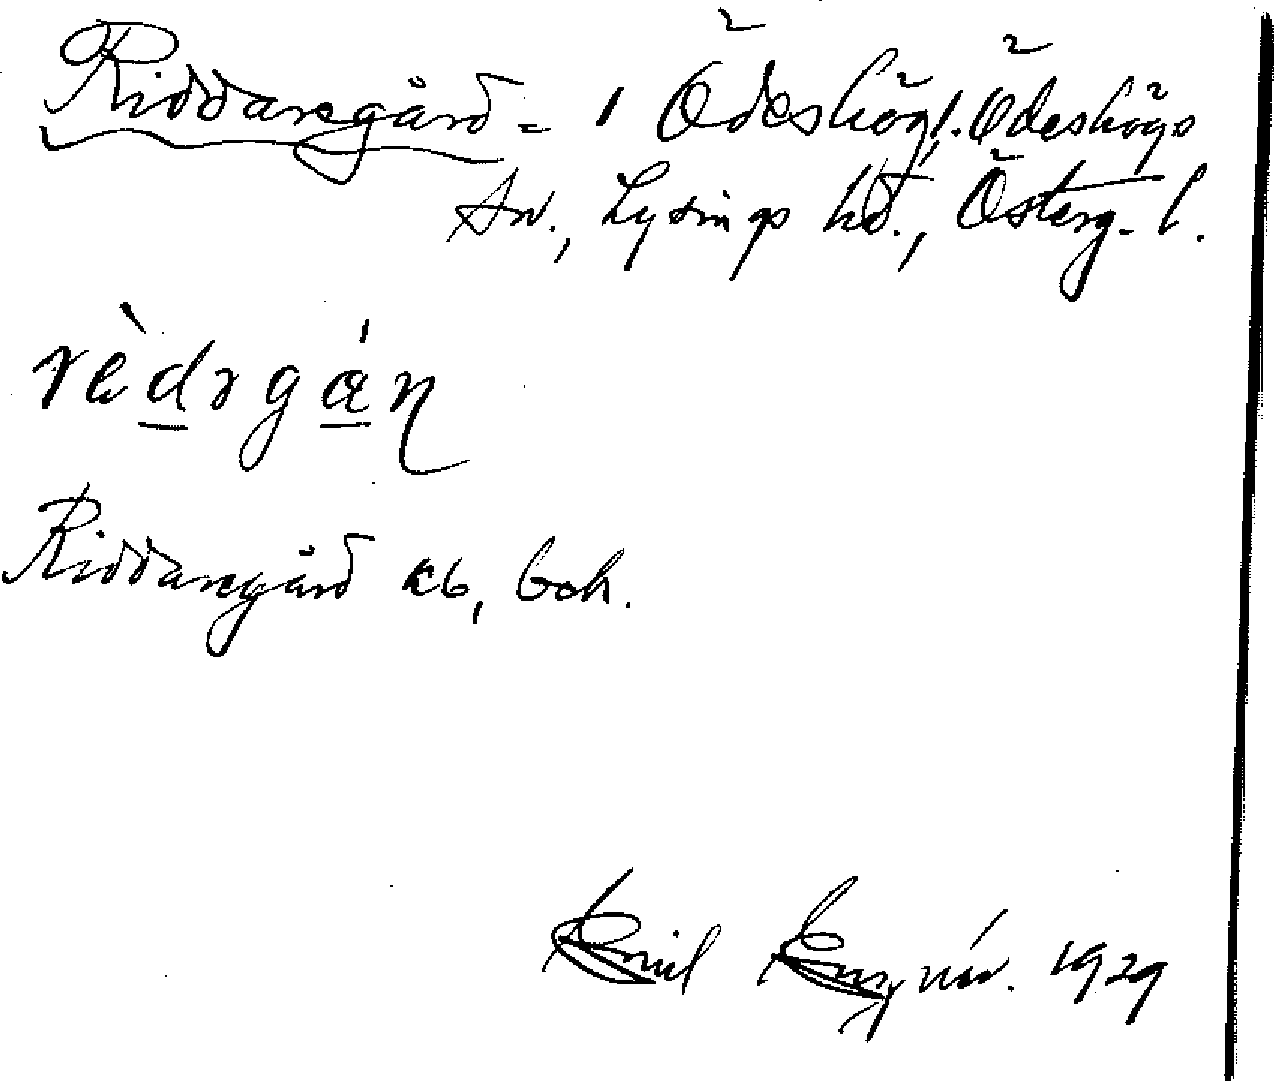 Riddaregård - i Ödeshög, Ödeshögs
sn., Lysings hd., Österg. l.
rèdrgán
Riddaregård kb, bok.
Emil 1929